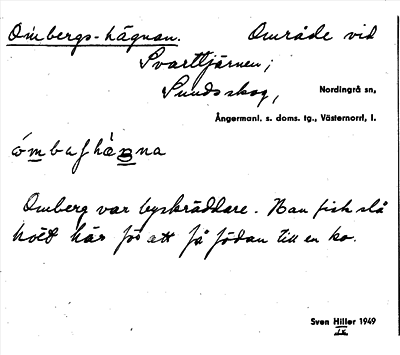 Ombergs-hägnan. Område vid
Svarttjärnen,
Sundsskog, Nordingrå sn,
Ångermanl. s. doms. tg., Västernorrl. l.
Omberg var byskräddare. Han fick slå
höet här för att få födan till en ko.
Sven Hiller 1949
IX